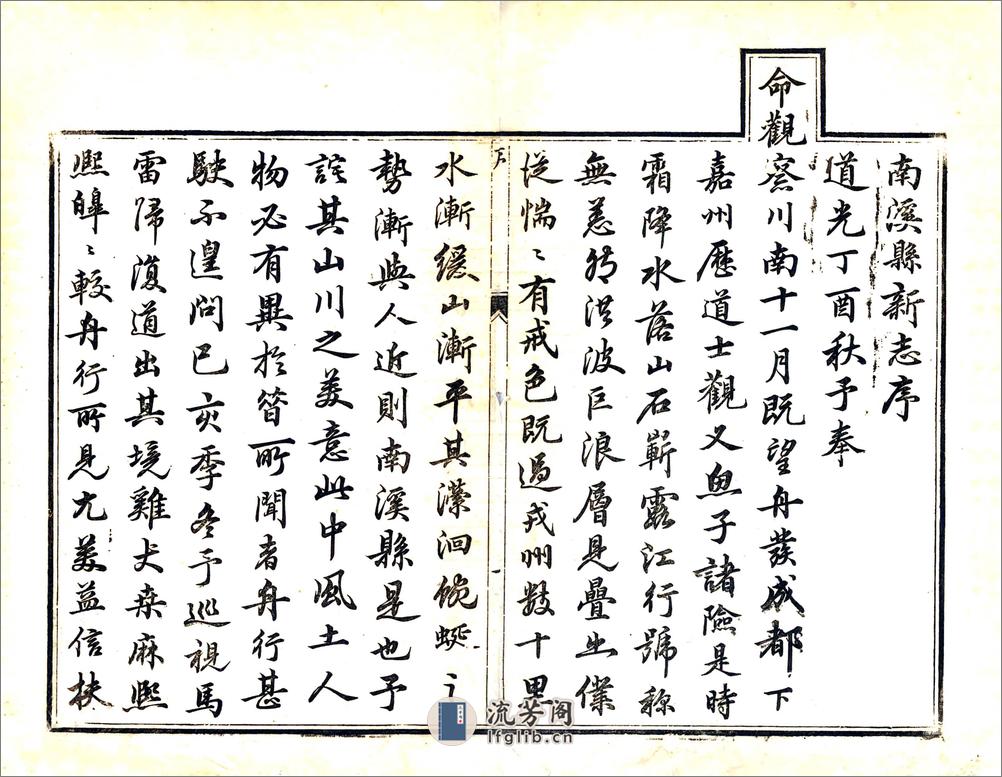 南溪縣新志序
道光丁酉秋予奉
命觀察川南十一月既望舟發成都下
嘉州歷道士觀义魚子諸險是時
霜降水落山石嶄露江行號称
無恙然洪波巨浪層見疊出僕
從惴〻有戒色既過戎州数十里
水漸緩山漸平其瀠洄蜿蜒之
勢漸與人近則南溪縣是也予
詫其山川之美意此中風土人
物必有異於昝所聞者舟行甚
駛不遑問已亥季冬予巡視馬
雷歸復道出其境雞犬桑麻熙
熙皞〻較舟行所見尤美益信扶
流芳阁
lfglib.cn